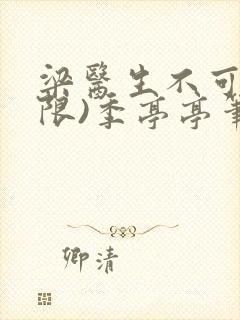 梁醫生不可
限)季亭亭筆
卿清